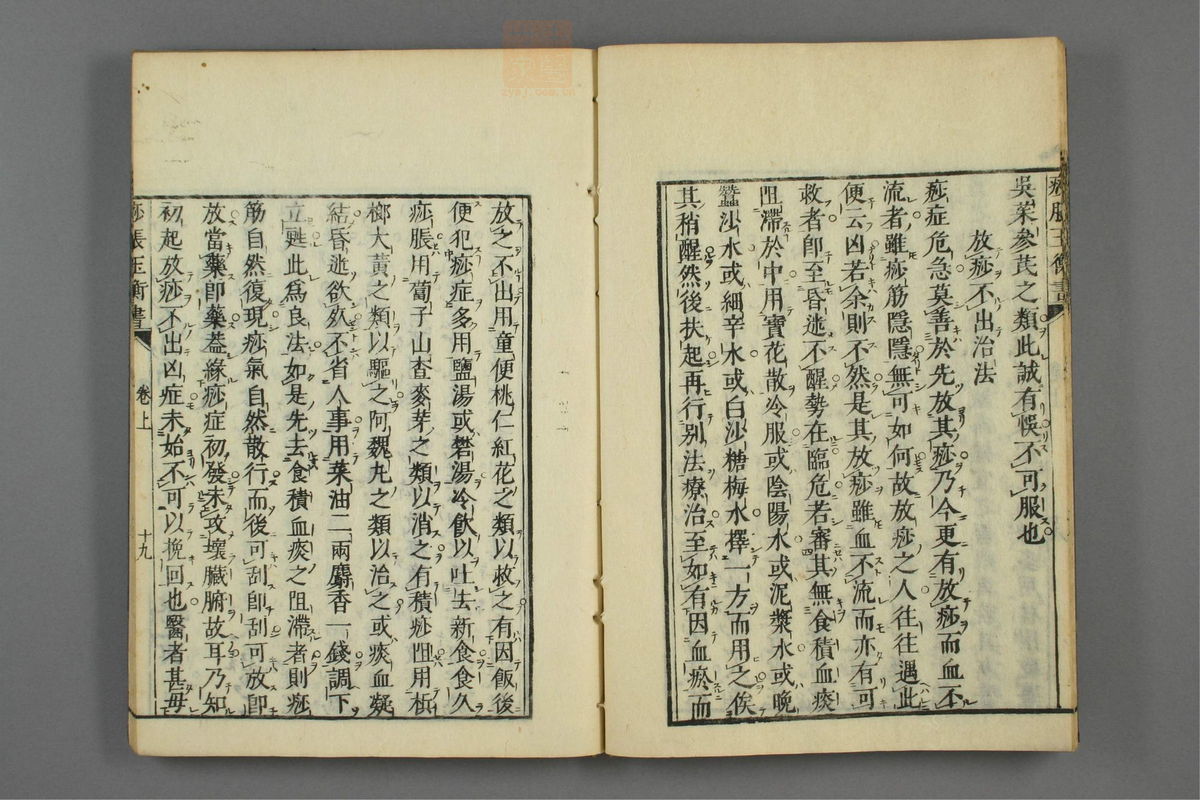 痧脹玉衡書
吳茱參芪之類此誠有悞不可服也
放痧不出治法
痧症危急莫善於先放其痧乃今更有放痧而血不
流者雖痧筋隱隱無可如何故放痧之人往往遇此
便云凶若余則不然是其放痧雖血不流而亦有可
救者卽至昏迷不醒勢在臨危若審其無食積血痰
阻滯於中用寶花散冷服或陰陽水或泥漿水或晚
蠶沙水或細辛水或白沙糖梅水擇一方而用之俟
其稍醒然後扶起再行别法療治至如有因血瘀而
放之不出用童便桃仁紅花之類以救之有因飯後
便犯痧症多用鹽湯或礬湯冷飲以吐去新食食久
痧脹用蔔子山查麥芽之類以消之有積痧阻用梹
榔大黃之類以驅之阿魏丸之類以治之或痰血凝
結昏迷欲死不省人事用菜油二兩麝香一錢調下
立甦此爲良法如是先去食積血痰之阻滯者則痧
筋自然復現痧氣自然散行而後可刮卽刮可放卽
放當藥卽藥葢緣痧症初發未攻壞臟腑故耳乃知
初起放痧不出凶症未始不可以挽回也醫者甚毋
痧脹玉衡書
卷上
十九